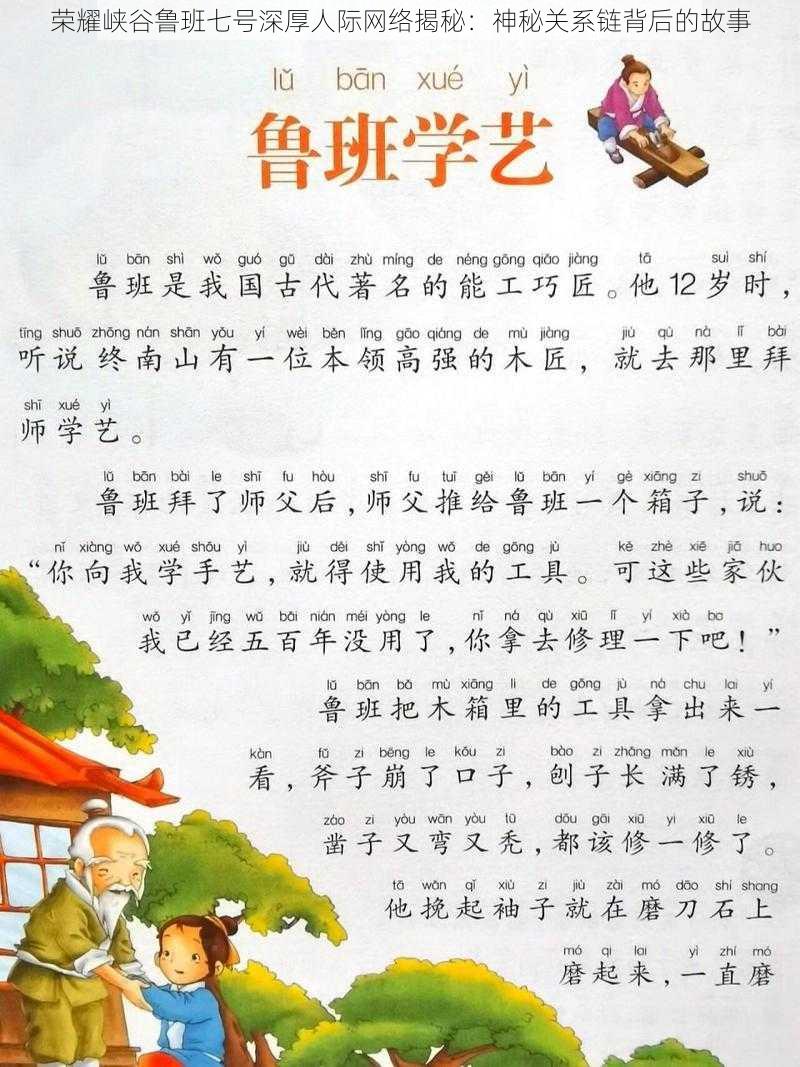 荣耀峡谷鲁班七号深厚人际网络揭秘：神秘关系链背后的故事
lǔ bān xué yì
鲁班学艺
lǔ bān shì wǒ guó gǔ dài zhù míng de néng gōng qiǎo jiàng tā suì shí
鲁班是我国古代著名的能工巧匠。他12岁时，
tīng shuō zhōng nán shān yǒu yí wèi běn lǐng gāo qiáng de mù jiàng jiù qù nà lǐ bài
听说终南山有一位本领高强的木匠，就去那里拜
shī xué yì
师学艺。
lǔ bān bài le shī fu hòu shī fu tuī gěi lǔ bān yí gè xiāng zi shuō
鲁班拜了师父后，师父推给鲁班一个箱子，说：
nǐ xiàng wǒ xué shǒu yì jiù děi shǐ yòng wǒ de gōng jù kě zhè xiē jiā huo
“你向我学手艺，就得使用我的工具。可这些家伙
wǒ yǐ jīng wǔ bǎi nián méi yòng le nǐ ná qù xiū lǐ yí xià ba
我已经五百年没用了，你拿去修理一下吧！”
lǔ bān bǎ mù xiāng li de gōng jù ná chu lai yí
鲁班把木箱里的工具拿出来一
kàn fǔ zi bēng le kǒu zi bào zi zhǎng mǎn le xiù
看，斧子崩了口子，刨子长满了锈，
záo zi yòu wān yòu tū dōu gāi xiū yi xiū le
凿子又弯又秃，都该修一修了。
tā wǎn qǐ xiù zi jiù zài mó dāo shí shang
他挽起袖子就在磨刀石上
mó qi lai yì zhí mó
磨起来，一直磨